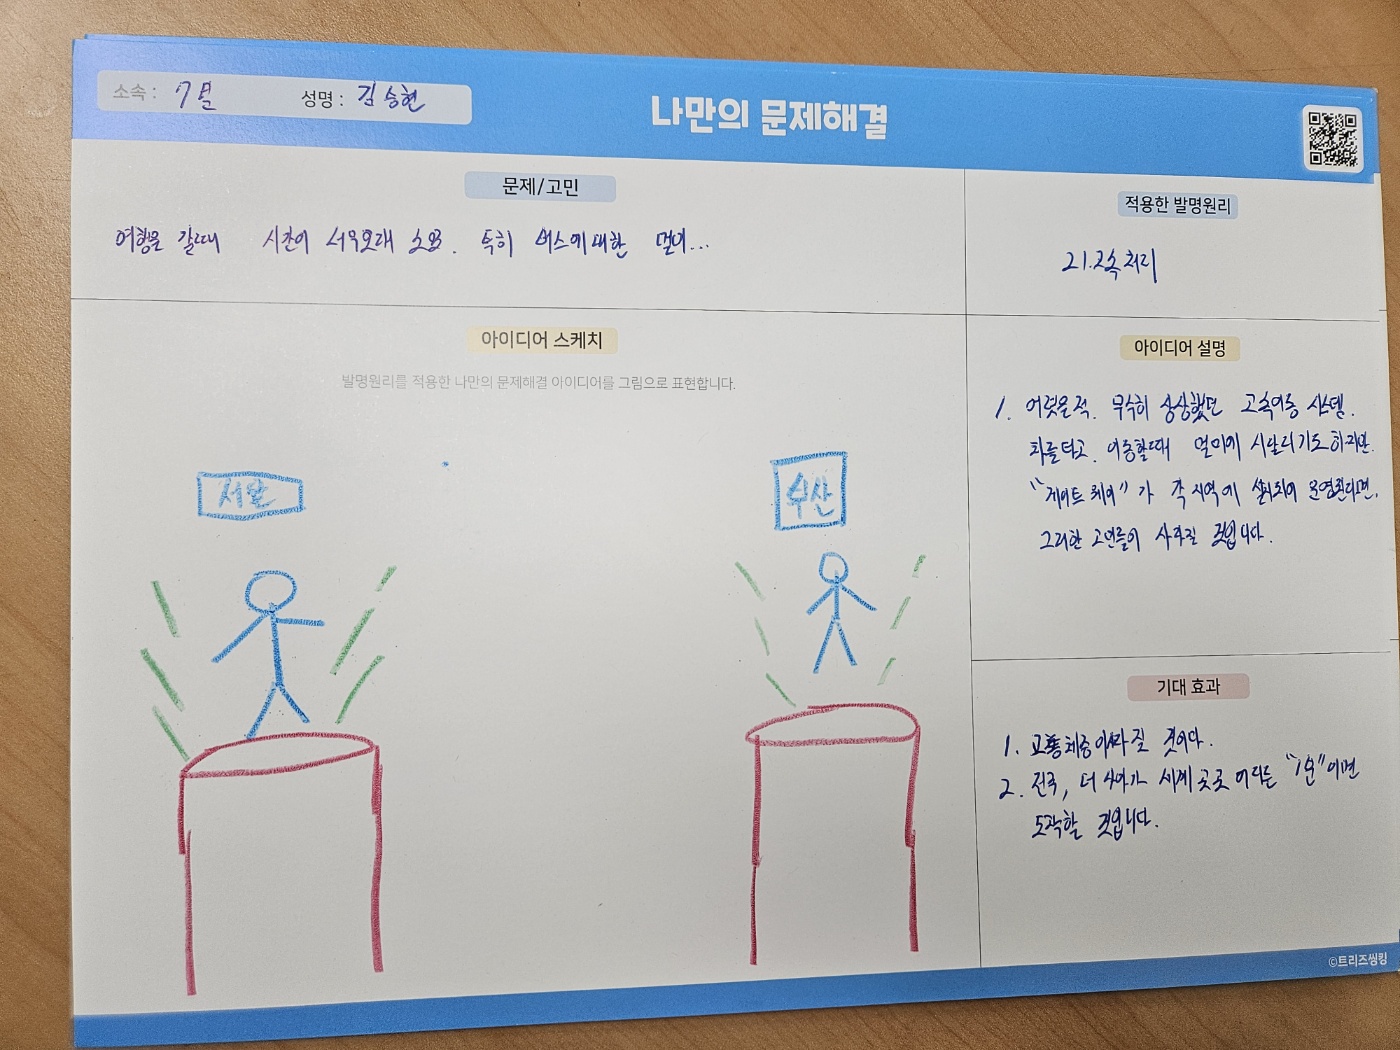 소속 : 7월 성명 : 김승현
나만의 문제해결
문제/고민
여행을 갈때 시간이 너무오래 소요. 특히 버스에대한 멀미...
적용한 발명원리
21.고속처리
아이디어 스케치
발명원리를 적용한 나만의 문제해결 아이디어를 그림으로 표현합니다.
서울
부산
아이디어 설명
1. 어렸을적. 무수히 상상했던 고속이동 시스템.
차를타고. 이동할때 멀미에 시달리기도하지만.
"게이트 웨이"가 각 지역에 설치되어 운영된다면.
그러한 고민들이 사라질 것입니다.
기대 효과
1. 교통체증이사라질 것이다.
2. 전국, 더 나아가 세계 곳곳 어디든 "1분"이면
도착할 것입니다.
©트리즈씽킹